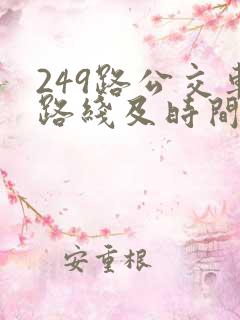 249路公交車
路綫及時間
安重根